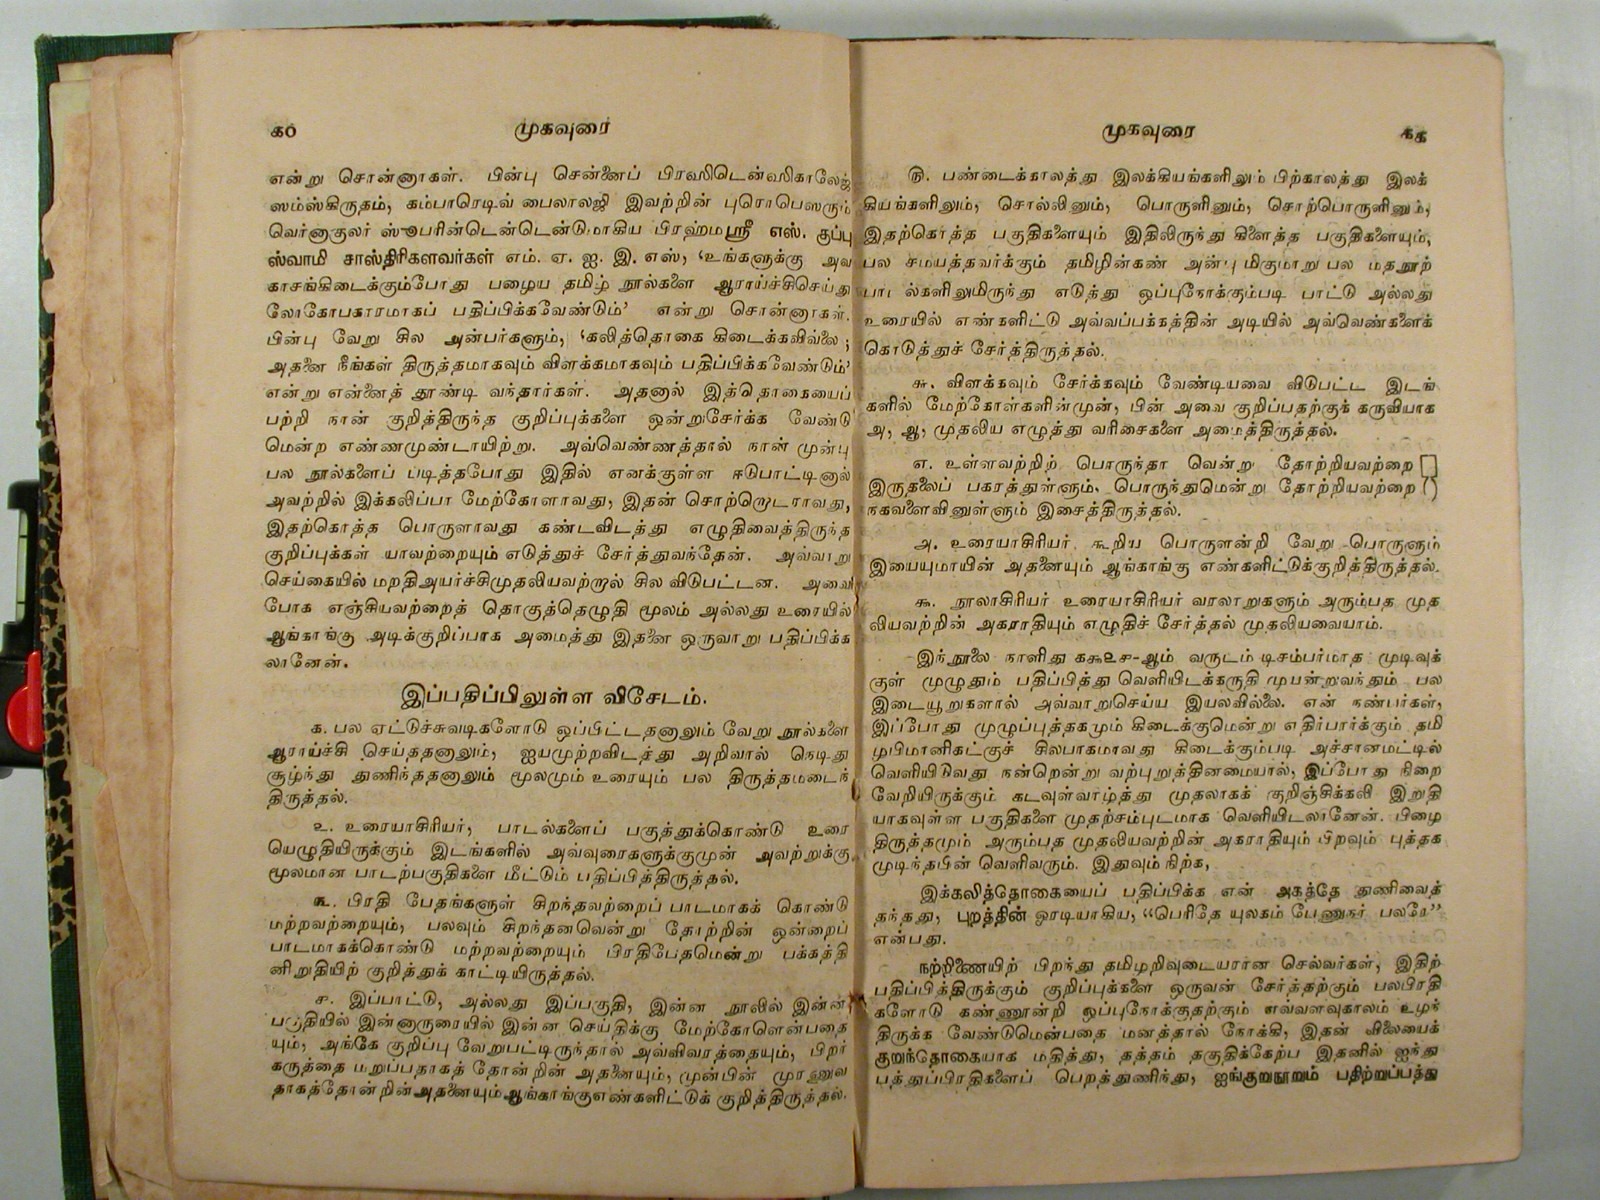 க௦ முகவுரை
என்று சொன்னாகள். பின்பு சென்னைப் பிரஸிடென்ஸிகாலேஜ்
ஸம்ஸ்கிருதம், கம்பாரெடிவ் பைலாலஜி இவற்றின் புரொபெஸரும்
வெர்னாகுலர் ஸூபரின்டென்டென்டுமாகிய பிரஹ்மஸ்ரீ எஸ். குப்பு
ஸ்வாமி சாஸ்திரிகளவர்கள் எம். ஏ. ஐ. இ. எஸ், ‘உங்களுக்கு அவ
காசங்கிடைக்கும்போது பழைய தமிழ் நூல்களை ஆராய்ச்சிசெய்து
லோகோபகாரமாகப் பதிப்பிக்கவேண்டும்’ என்று சொன்னாகள்.
பின்பு வேறு சில அன்பர்களும், ‘கலித்தொகை கிடைக்கவில்லை;
அதனை நீங்கள் திருத்தமாகவும் விளக்கமாகவும் பதிப்பிக்கவேண்டும்’
என்று என்னைத் தூண்டி வந்தார்கள். அதனால் இத்தொகையைப்
பற்றி நான் குறித்திருந்த குறிப்புக்களை ஒன்றுசேர்க்க வேண்டு
மென்ற எண்ணமுண்டாயிற்று. அவ்வெண்ணத்தால் நான் முன்பு
பல நூல்களைப் படித்தபோது இதில் எனக்குள்ள ஈடுபாட்டினால்
அவற்றில் இக்கலிப்பா மேற்கோளாவது, இதன் சொற்றொடராவது,
இதற்கொத்த பொருளாவது கண்டவிடத்து எழுதிவைத்திருந்த
குறிப்புக்கள் யாவற்றையும் எடுத்துச் சேர்த்துவந்தேன். அவ்வாறு
செய்கையில் மறதிஅயர்ச்சிமுதலியவற்றால் சில விடுபட்டன. அவை
போக எஞ்சியவற்றைத் தொகுத்தெழுதி மூலம் அல்லது உரையில்
ஆங்காங்கு அடிக்குறிப்பாக அமைத்து இதனை ஒருவாறு பதிப்பிக்க
லானேன்.
இப்பதிப்பிலுள்ள விசேடம்.
க. பல ஏட்டுச்சுவடிகளோடு ஒப்பிட்டதனாலும் வேறு நூல்களை
ஆராய்ச்சி செய்ததனாலும், ஐயமுற்றவிடத்து அறிவால் நெடிது
சூழ்ந்து துணிந்ததனாலும் மூலமும் உரையும் பல திருத்தமடைந்
திருத்தல்.
உ. உரையாசிரியர், பாடல்களைப் பகுத்துக்கொண்டு உரை
யெழுதியிருக்கும் இடங்களில் அவ்வுரைகளுக்குமுன் அவற்றுக்கு
மூலமான பாடற்பகுதிகளை மீட்டும் பதிப்பித்திருத்தல்.
௩. பிரதி பேதங்களுள் சிறந்தவற்றைப் பாடமாகக் கொண்டு
மற்றவற்றையும், பலவும் சிறந்தனவென்று தோற்றின் ஒன்றைப்
பாடமாகக்கொண்டு மற்றவற்றையும் பிரதிபேதமென்று பக்கத்தி
னிறுதியிற் குறித்துக் காட்டியிருத்தல்.
௪. இப்பாட்டு, அல்லது இப்பகுதி, இன்ன நூலில் இன்ன
பகுதியில் இன்னாருரையில் இன்ன செய்திக்கு மேற்கோளென்பதை
யும், அங்கே குறிப்பு வேறுபட்டிருந்தால் அவ்விவரத்தையும், பிறர்
கருத்தை மறுப்பதாகத் தோன்றின் அதனையும், முன்பின் முரணுவ
தாகத்தோன்றின்அதனையும்ஆங்காங்குஎண்களிட்டுக் குறித்திருத்தல்.
முகவுரை கக
௫. பண்டைக்காலத்து இலக்கியங்களிலும் பிற்காலத்து இலக்
கியங்களிலும், சொல்லினும், பொருளினும், சொற்பொருளினும்,
இதற்கொத்த பகுதிகளையும் இதிலிருந்து கிளைத்த பகுதிகளையும்,
பல சமயத்தவர்க்கும் தமிழின்கண் அன்பு மிகுமாறு பல மதநூற்
பாடல்களிலுமிருந்து எடுத்து ஒப்புநோக்கும்படி பாட்டு அல்லது
உரையில் எண்களிட்டு அவ்வப்பக்கத்தின் அடியில் அவ்வெண்களைக்
கொடுத்துச் சேர்த்திருத்தல்.
௬. விளக்கவும் சேர்க்கவும் வேண்டியவை விடுபட்ட இடங்
களில் மேற்கோள்களின்முன், பின் அவை குறிப்பதற்குக் கருவியாக
அ, ஆ, முதலிய எழுத்து வரிசைகளை அமைத்திருத்தல்.
எ. உள்ளவற்றிற் பொருந்தா வென்று தோற்றியவற்றை []
இருதலைப் பகரத்துள்ளும், பொருந்துமென்று தோற்றியவற்றை ()
நகவளைவினுள்ளும் இசைத்திருத்தல்.
அ. உரையாசிரியர் கூறிய பொருளன்றி வேறு பொருளும்
இயையுமாயின் அதனையும் ஆங்காங்கு எண்களிட்டுக்குறித்திருத்தல்.
௯. நூலாசிரியர் உரையாசிரியர் வரலாறுகளும் அரும்பத முத
லியவற்றின் அகராதியும் எழுதிச் சேர்த்தல் முதலியவையாம்.
இந்நூலை நாளிது க௯உ௪-ஆம் வருடம் டிசம்பர்மாத முடிவுக்
குள் முழுதும் பதிப்பித்து வெளியிடக்கருதி முயன்றுவந்தும் பல
இடையூறுகளால் அவ்வாறுசெய்ய இயலவில்லை. என் நண்பர்கள்,
இப்போது முழுப்புத்தகமும் கிடைக்குமென்று எதிர்பார்க்கும் தமி
ழபிமானிகட்குச் சிலபாகமாவது கிடைக்கும்படி அச்சானமட்டில்
வெளியிடுவது நன்றென்று வற்புறுத்தினமையால், இப்போது நிறை
வேறியிருக்கும் கடவுள்வாழ்த்து முதலாகக் குறிஞ்சிக்கலி இறுதி
யாகவுள்ள பகுதிகளை முதற்சம்புடமாக வெளியிடலானேன். பிழை
திருத்தமும் அரும்பத முதலியவற்றின் அகராதியும் பிறவும் புத்தக
முடிந்தபின் வெளிவரும். இதுவும் நிற்க,
இக்கலித்தொகையைப் பதிப்பிக்க என் அகத்தே துணிவைத்
தந்தது, புறத்தின் ஓரடியாகிய, “பெரிதே யுலகம் பேணுநர் பலரே”
என்பது.
நற்றிணையிற் பிறந்து தமிழறிவுடையரான செல்வர்கள், இதிற்
பதிப்பித்திருக்கும் குறிப்புக்களை ஒருவன் சேர்த்தற்கும் பலபிரதி
களோடு கண்ணூன்றி ஒப்புநோக்குதற்கும் எவ்வளவுகாலம் உழந்
திருக்க வேண்டுமென்பதை மனத்தால் நோக்கி, இதன் விலையைக்
குறுந்தொகையாக மதித்து, தத்தம் தகுதிக்கேற்ப இதனில் ஐந்து
பத்துப்பிரதிகளைப் பெறத்துணிந்து, ஐங்குறுநூறும் பதிற்றுப்பத்து